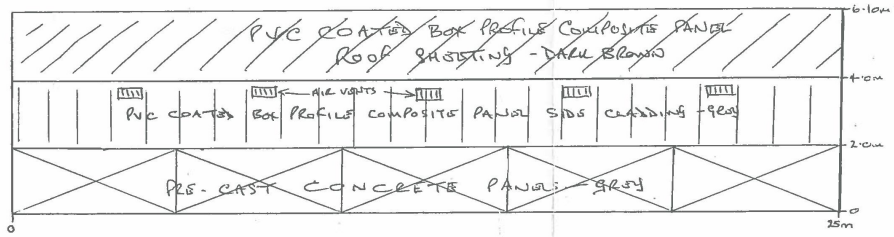 6.10m
PVC COATED BOX PROFILE COMPOSITE PANEL
ROOF SHEETING - DARK BROWN
4.0m
AIR VENTS
PVC COATED BOX PROFILE COMPOSITE PANEL SIDE CLADDING - GREY
2.0m
PRE-CAST CONCRETE PANEL - GREY
0
0
25m